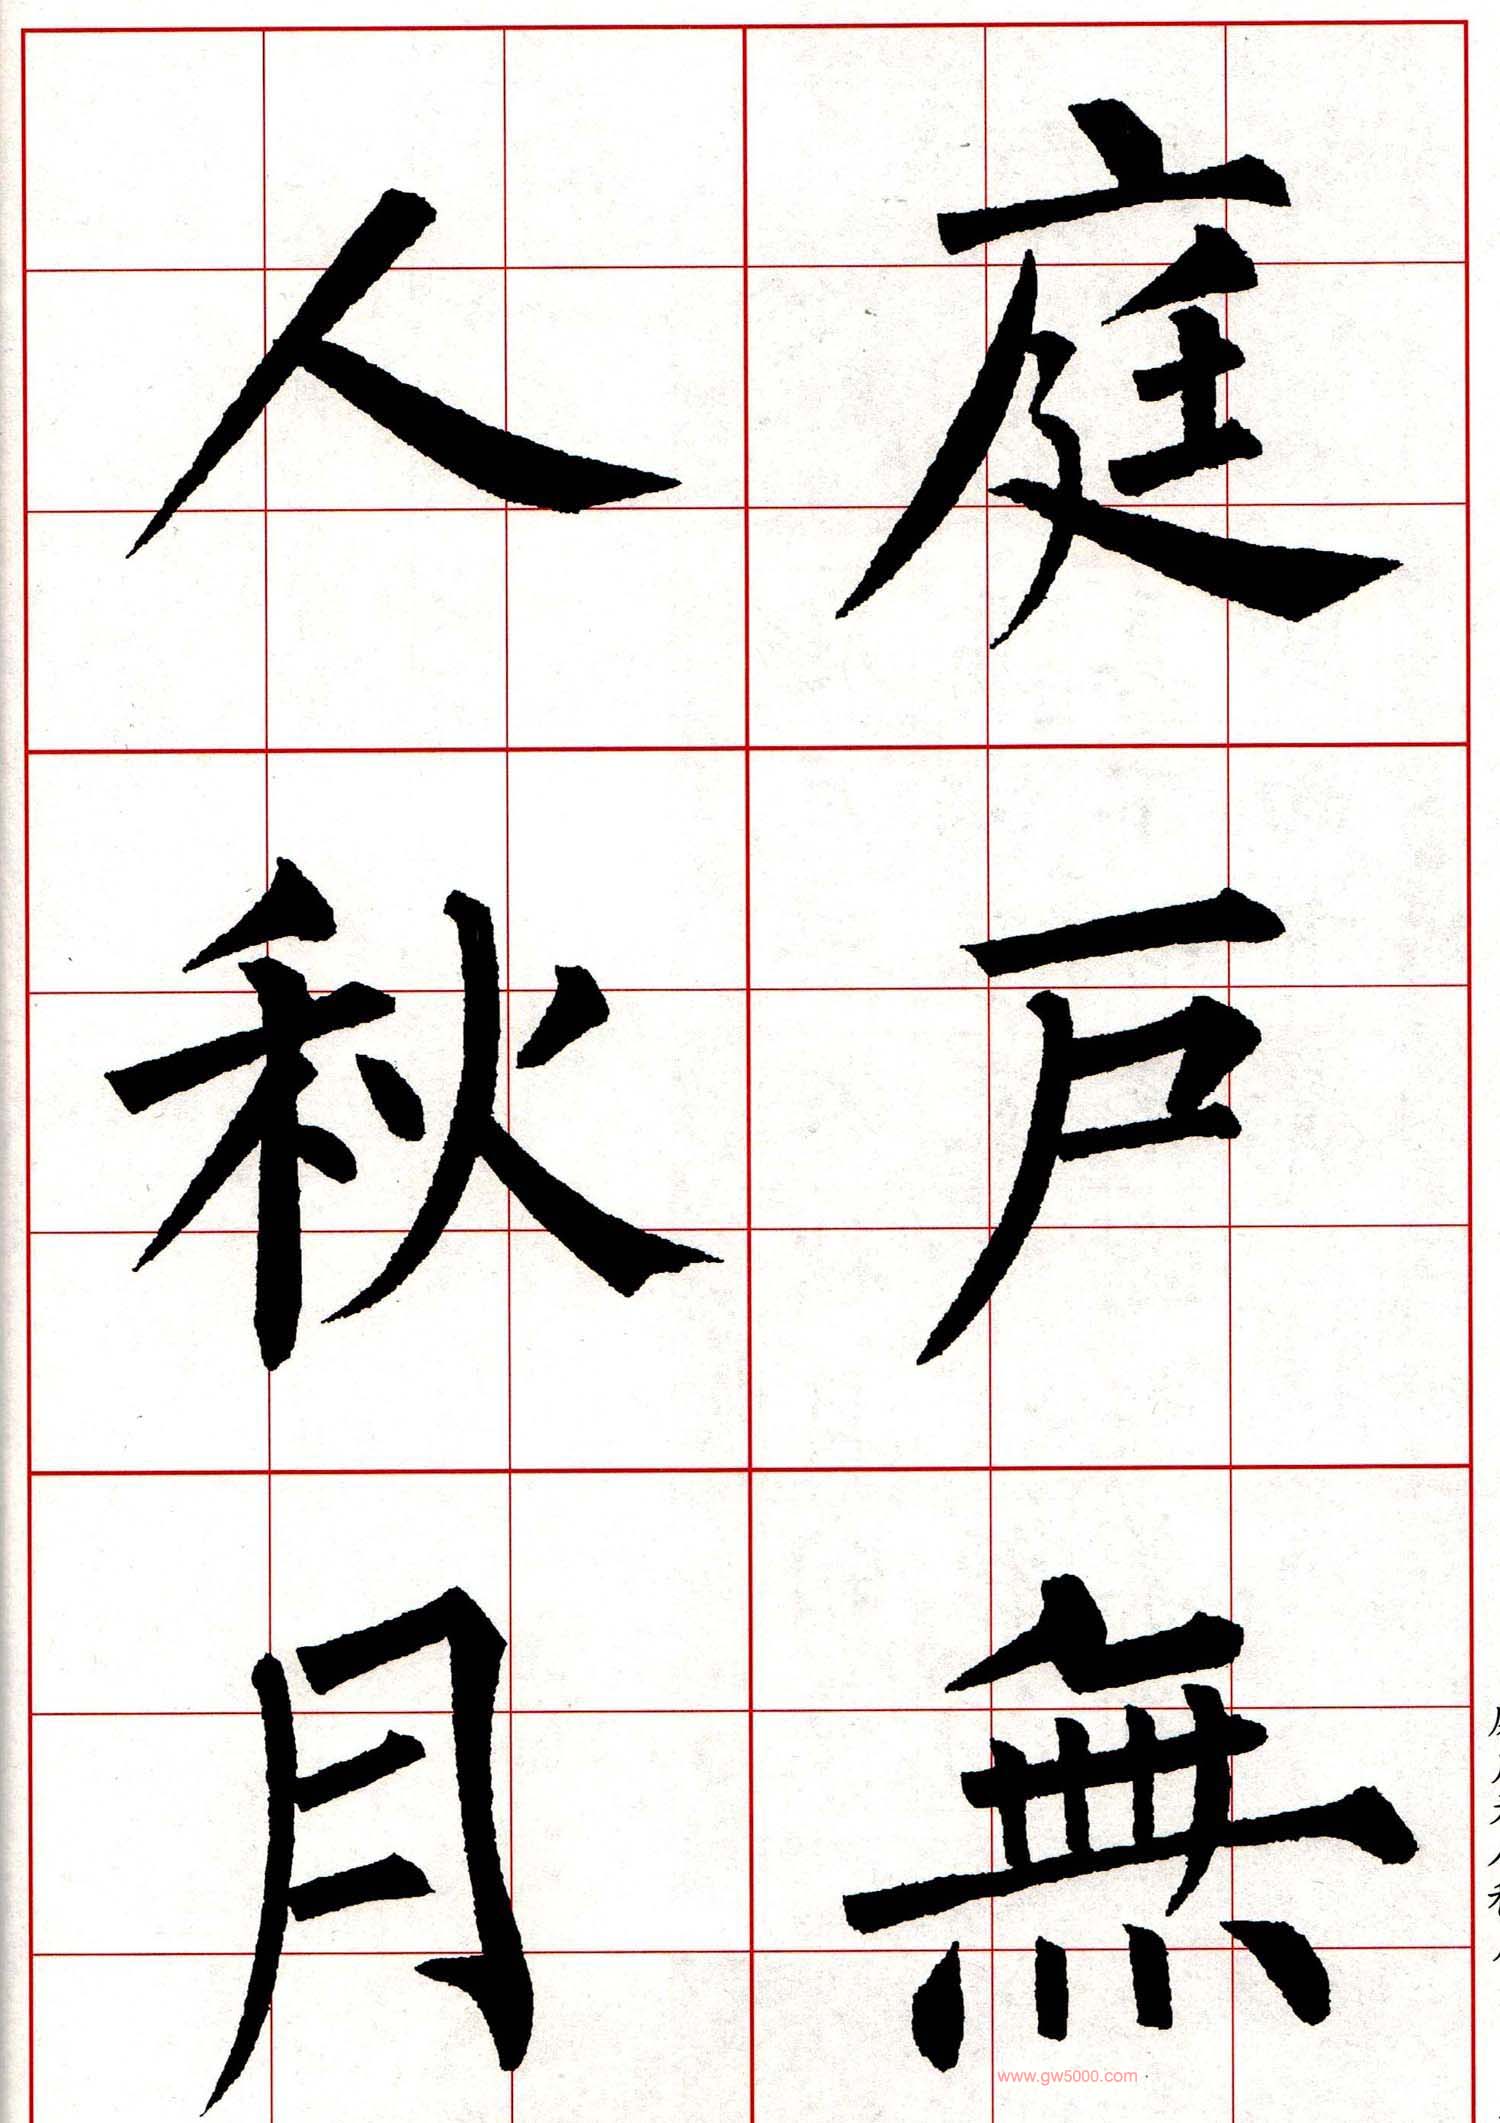 庭戶無
人秋月
www.gw5000.com